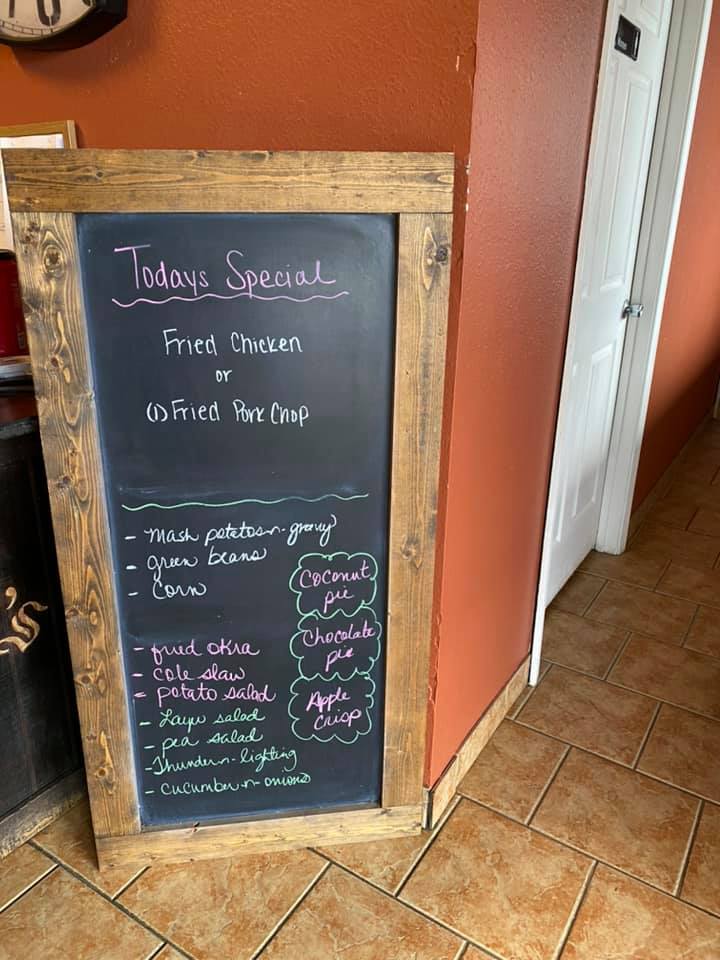 Todays Special
Fried Chicken
or
(1) Fried Pork Chop
- Mash potatoes-n-gravy
- green beans
- Corn
Coconut
pie
Chocolate
pie
Apple
Crisp
- fried okra
- cole slaw
- potato salad
- Layu salad
- pea salad
- Thunder-n-lighting
- cucumber-n-onions
's